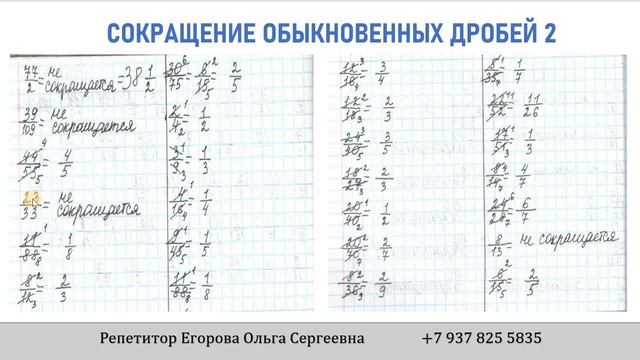 СОКРАЩЕНИЕ ОБЫКНОВЕННЫХ ДРОБЕЙ 2
77/2 = не сокращается = 38 1/2
39/109 = не сокращается
44/55 = 4/5
23/33 = не сокращается
11/88 = 1/8
8/12 = 2/3
30/75 = 6/15 = 2/5
2/4 = 1/2
3/9 = 1/3
4/16 = 1/4
9/45 = 1/5
11/88 = 1/8
12/16 = 3/4
12/18 = 2/3
24/40 = 3/5
18/27 = 2/3
20/40 = 1/2
20/70 = 2/7
8/36 = 2/9
5/35 = 1/7
22/52 = 11/26
17/51 = 1/3
8/14 = 4/7
24/28 = 6/7
8/13 = не сокращается
6/15 = 2/5
Репетитор Егорова Ольга Сергеевна +7 937 825 5835